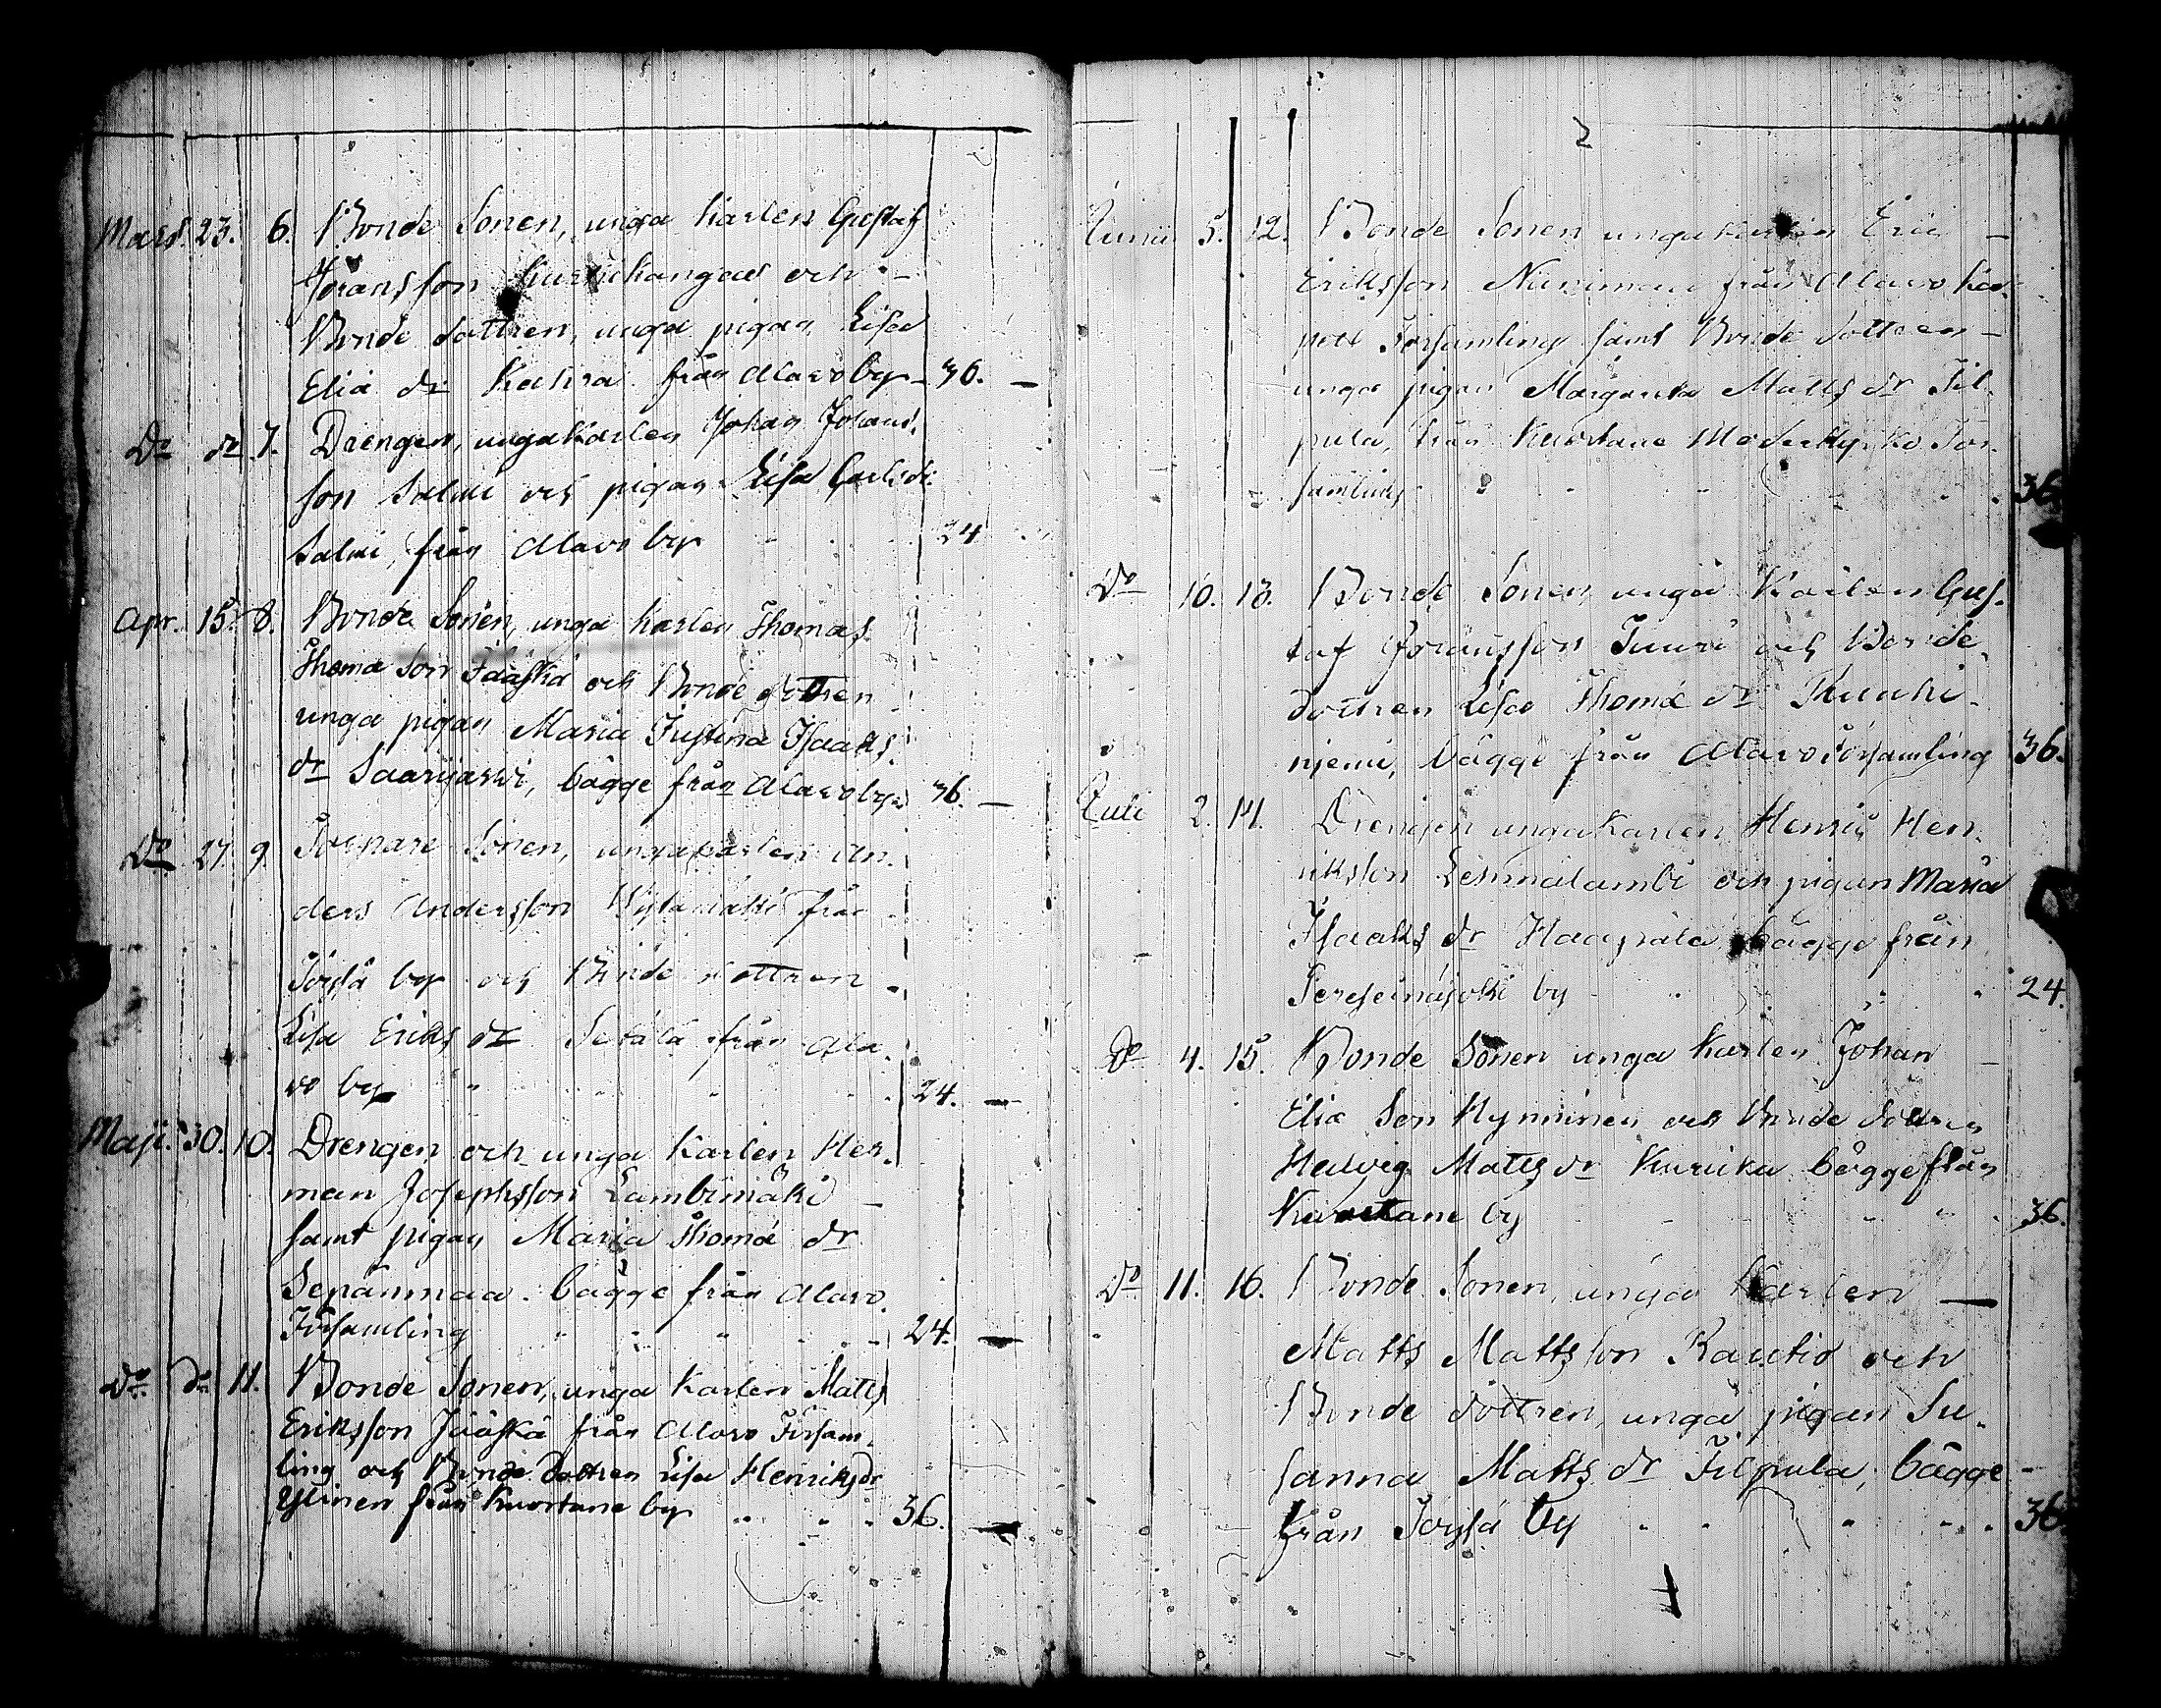 Mars. 23. 6. Bonde Sonen, unga karlen Gustaf
Jöransson Kuruskangas och
Bonde dottren, unga pigan Lisa
Eliæ dr Kahra från Alavo by 36. —
Do do 7. Drengen, unga karlen Johan Johans
son Salmi och pigan Lisa Carls dr
Salmi, från Alavo by 24
Apr. 15. 8. Bonde Sonen, unga karlen Thomas
Thomæ Son Jääskä och Bonde dottren
unga pigan Maria Justina Isaaks
dr Saarijärvi, bägge från Alavo by 36. —
Do 27. 9. Sonen, unga karlen An
ders Andersson från
Töysä by och Bonde dottren
Lisa Eriks dr Setälä från Ala
vo by 24. —
Maji. 30. 10. Drengen och unga karlen Her
man Josephsson Lambimäki
samt pigan Maria Thomæ dr
Sepänmaa. bägge från Alavo
Församling 24. —
Do do 11. Bonde Sonen, unga karlen Matts
Eriksson Jääskä från Alavo Försam
ling och Bonde Dottren Lisa Henriks dr
Ylinen från Kuortane by 36. —
2
Junii 5. 12. Bonde Sonen unga karlen Eric —
Eriksson Niinimäe från Alavo Ka
pell Församling samt Bonde dottren —
unga pigan Margareta Matts dr Fil
pula, från Kuortane Moderkyrko För
samling 36
Do 10. 13. Bonde Sonen unga karlen Gus
taf Jöransson Tuuri och Bonde
dottren Lisa Thomæ dr
niemi, bägge från Alavo församling 36.
Juli 2. 14. Drengen unga karlen Henric Hen
riksson Lehmälambi och pigan Maria
Isaaks dr Haapala, bägge från
Peräseinäjoki by 24.
Do 4. 15. Bonde Sonen unga karlen Johan —
Eliæ Son Hynninen och Bonde dottren
Hedvig Matts dr Kurika bägge från
Kuortane by 36.
Do 11. 16. Bonde Sonen, unga karlen —
Matts Mattsson Rautio och
Bonde dottren, unga pigan Su
sanna Matts dr Filpula, bägge
från Töysä by 36.